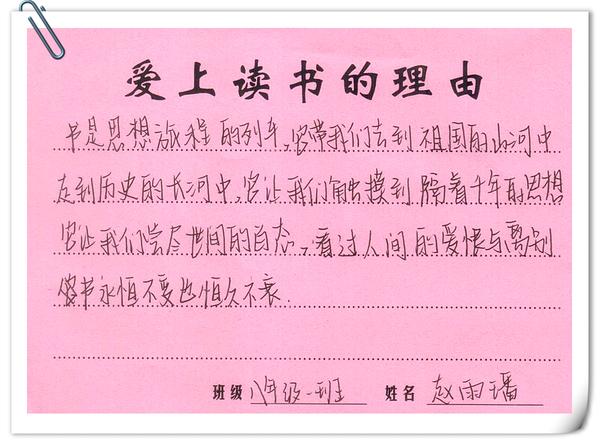 爱上读书的理由
书是思想旅程的列车,它带我们去到祖国的山河中
走到历史的长河中,它让我们触摸到隔着千年的思想
它让我们尝尽世间的百态,看过人间的爱恨与离别
书永恒不变也恒久不衰.
班级 八年级一班 姓名 赵雨璠